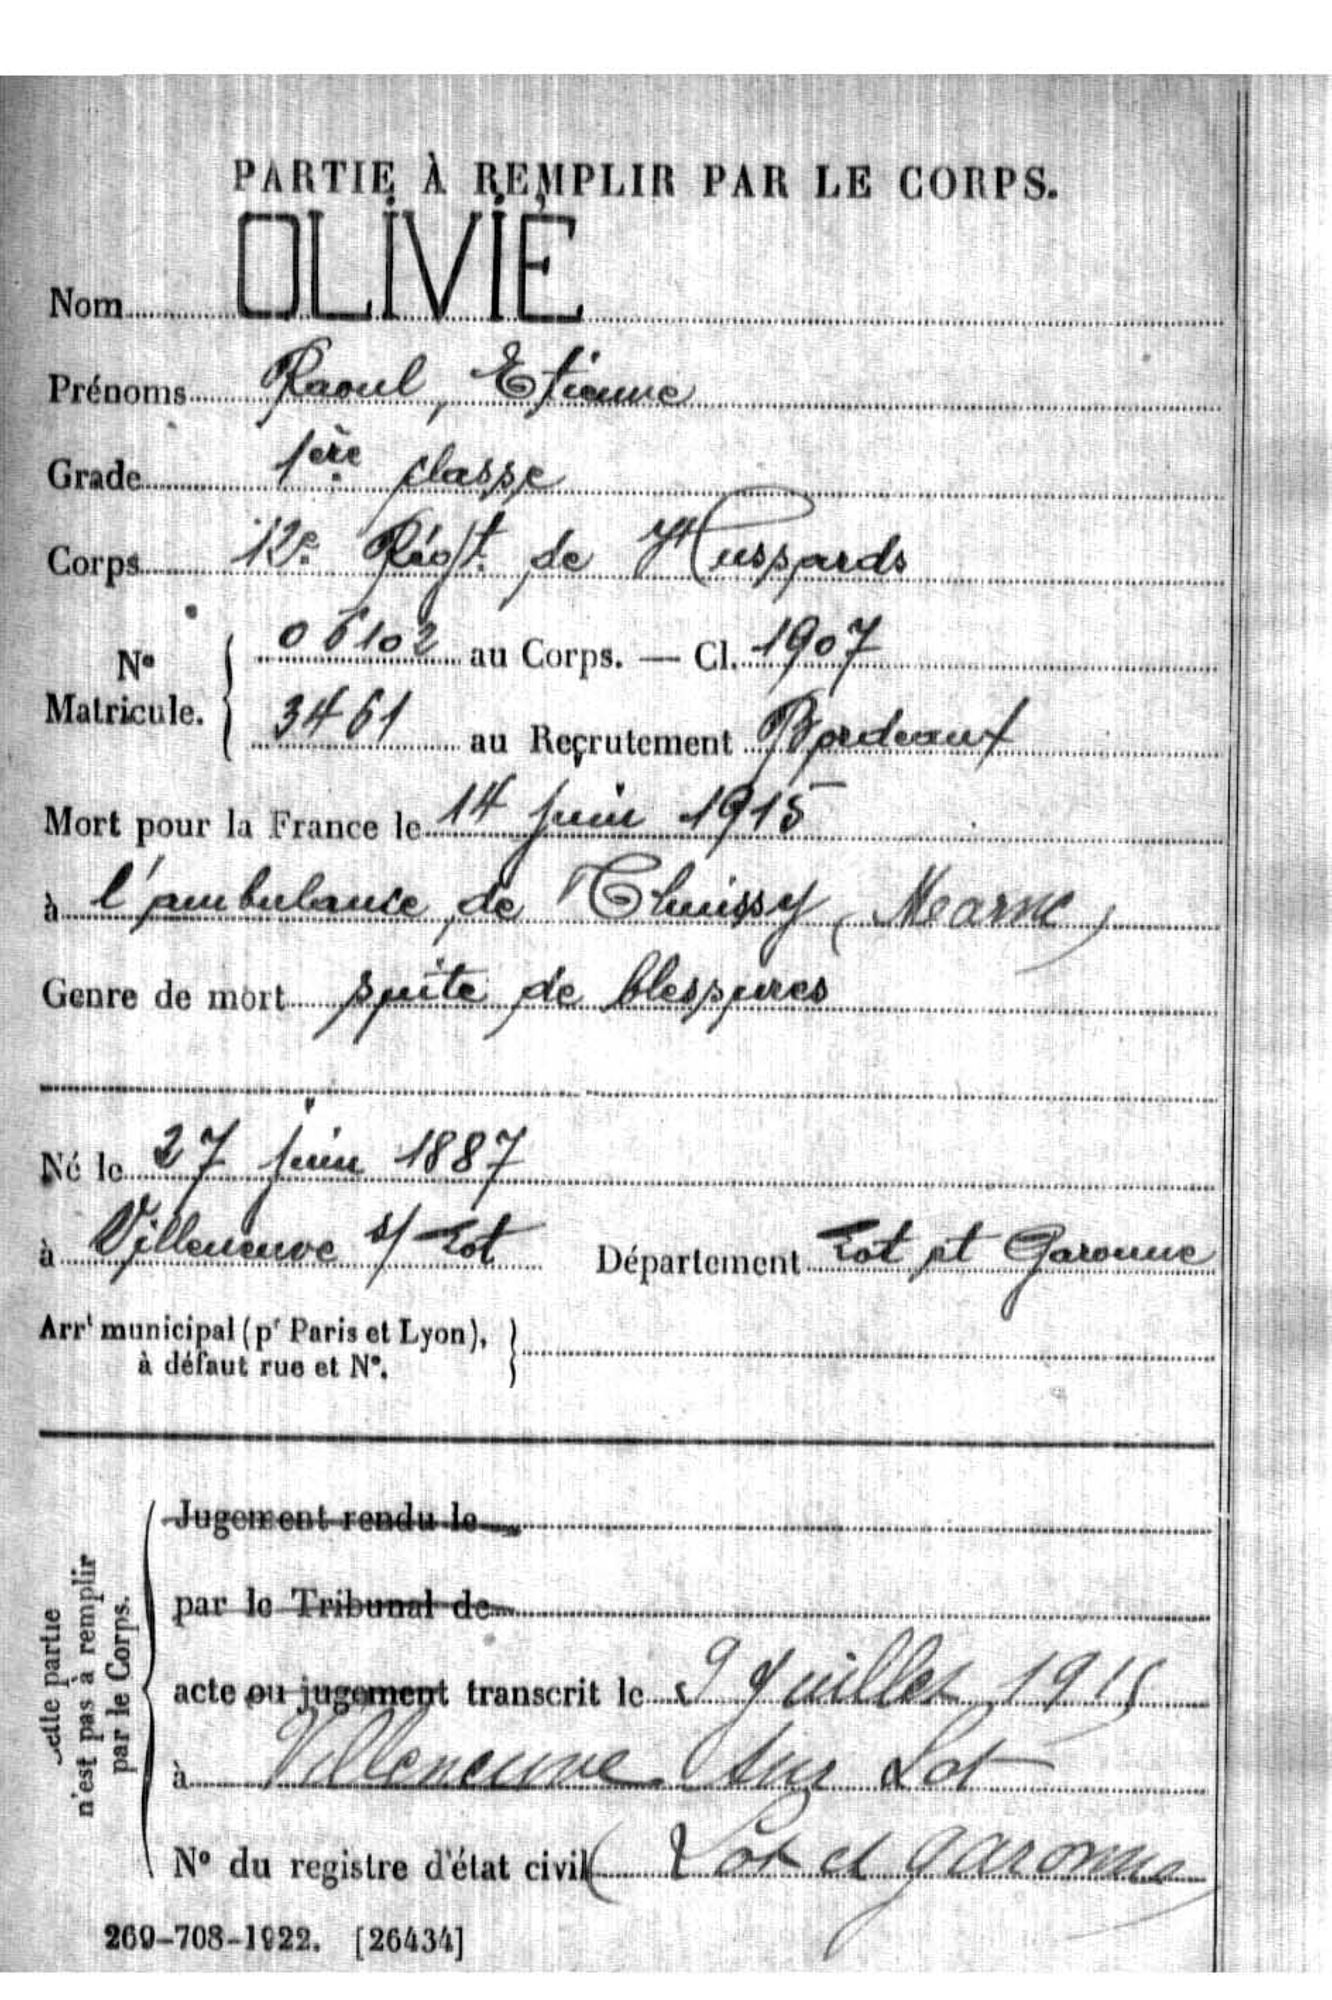 PARTIE À REMPLIR PAR LE CORPS.
Nom OLIVIE
Prénoms Raoul, Etienne
Grade 1ère classe
Corps 12e Régt. de Hussards
No Matricule. { 06102 au Corps. — Cl. 1907
3461 au Recrutement Bordeaux
Mort pour la France le 14 juin 1915
à l'ambulance de Thuissy (Marne)
Genre de mort suite de blessures
Né le 27 juin 1887
à Villeneuve s/ Lot Département Lot et Garonne
Arrt municipal (pr Paris et Lyon), }
à défaut rue et No.
Cette partie
n'est pas à remplir
par le Corps.
Jugement rendu le
par le Tribunal de
acte ou jugement transcrit le 9 Juillet 1915
à Villeneuve sur Lot
No du registre d'état civil (Lot et Garonne)
269-708-1922. [26434]